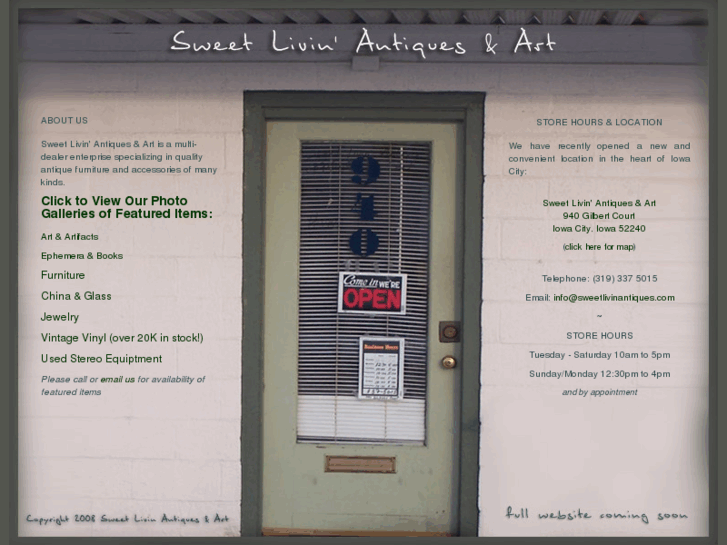 Sweet Livin' Antiques & Art
ABOUT US
Sweet Livin' Antiques & Art is a multi-
dealer enterprise specializing in quality
antique furniture and accessories of many
kinds.
Click to View Our Photo
Galleries of Featured Items:
Art & Artifacts
Ephemera & Books
Furniture
China & Glass
Jewelry
Vintage Vinyl (over 20K in stock!)
Used Stereo Equiptment
Please call or email us for availability of
featured items
Copyright 2008 Sweet Livin Antiques & Art
940
Come in WE'RE
OPEN
Business Hours
STORE HOURS & LOCATION
We have recently opened a new and
convenient location in the heart of Iowa
City:
Sweet Livin' Antiques & Art
940 Gilbert Court
Iowa City, Iowa 52240
(click here for map)
Telephone: (319) 337 5015
Email: info@sweetlivinantiques.com
~
STORE HOURS
Tuesday - Saturday 10am to 5pm
Sunday/Monday 12:30pm to 4pm
and by appointment
full website coming soon